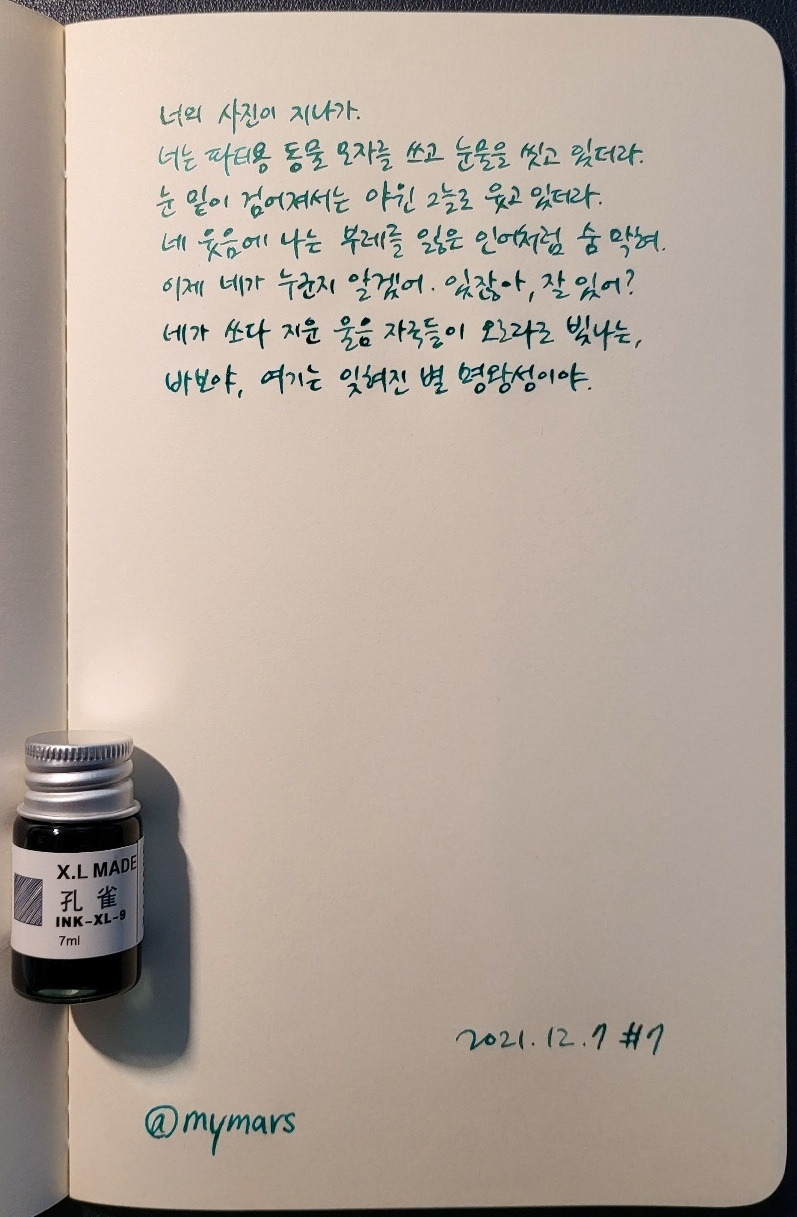 너의 사진이 지나가.
너는 파티용 동물 모자를 쓰고 눈물을 씻고 있더라.
눈 밑이 검어져서는 야윈 그늘로 웃고 있더라.
네 웃음에 나는 부레를 잃은 인어처럼 숨 막혀.
이제 네가 누군지 알겠어. 있잖아, 잘 있어?
네가 쓰다 지운 울음 자국들이 오로라로 빛나는,
바보야, 여기는 잊혀진 별 명왕성이야.
X.L MADE
孔雀
INK-XL-9
7ml
2021.12.7 #7
@mymars